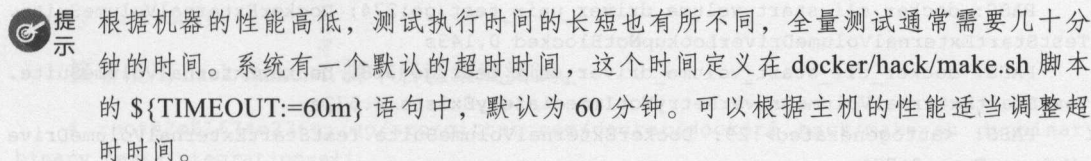 提示
根据机器的性能高低，测试执行时间的长短也有所不同，全量测试通常需要几十分
钟的时间。系统有一个默认的超时时间，这个时间定义在 docker/hack/make.sh 脚本
的 ${TIMEOUT:=60m} 语句中，默认为 60 分钟。可以根据主机的性能适当调整超
时时间。